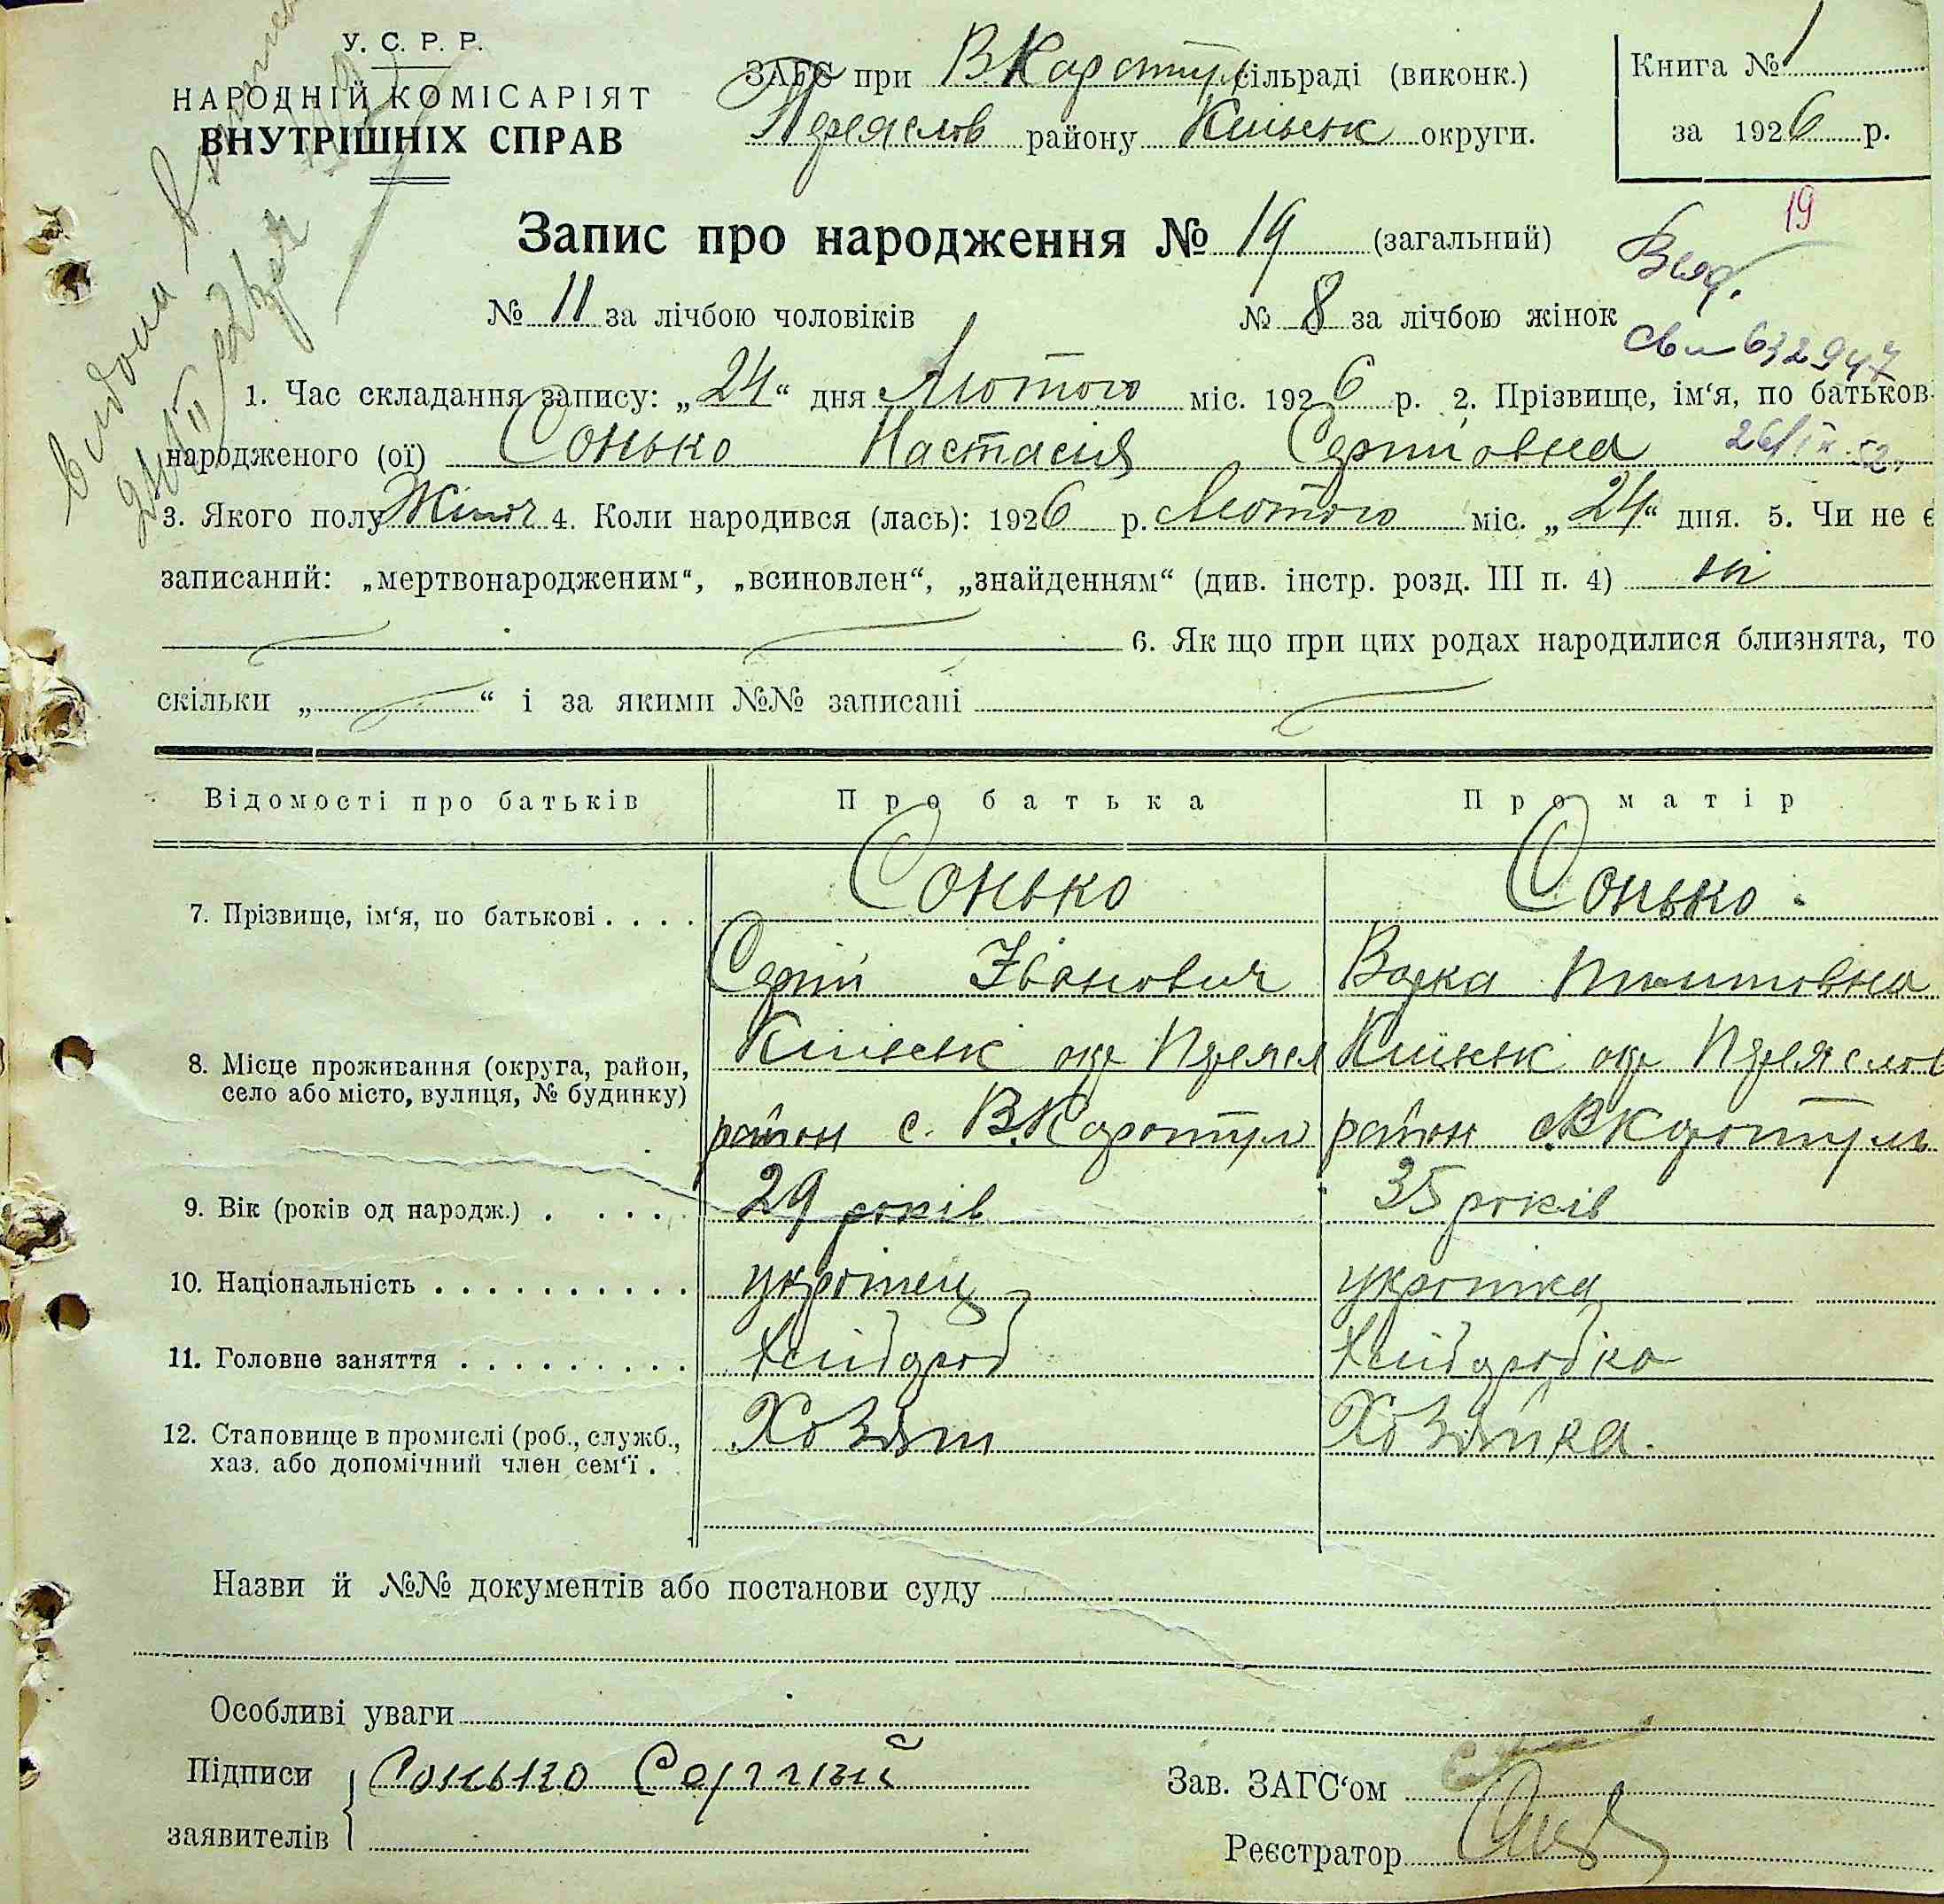 У. С. Р. Р.
НАРОДНІЙ КОМІСАРІЯТ
ВНУТРІШНІХ СПРАВ
ЗАГС при В.Каротул сільраді (виконк.)
Переяслов району Київськ округи.
Книга № 1
за 1926 р.
19
Запис про народження № 19 (загальний)
№ 11 за лічбою чоловіків № 8 за лічбою жінок
632947
1. Час складання запису: „24“ дня Лютого міс. 1926 р. 2. Прізвище, ім‘я, по батьков
народженого (ої) Сонько Настасія Сергіїовна
3. Якого полу Жіноч 4. Коли народився (лась): 1926 р. Лютого міс. „24“ дня. 5. Чи не є
записаний: „мертвонародженим“, „всиновлен“, „знайденням“ (див. інстр. розд. III п. 4) ні
6. Як що при цих родах народилися близнята, то
скільки „ “ і за якими №№ записані
Відомості про батьків Про батька Про матір
7. Прізвище, ім‘я, по батькові . . . . Сонько Сонько.
Сергій Іванович Варка
8. Місце проживання (округа, район,
село або місто, вулиця, № будинку)
Київськ окр Переясл Київськ окр Переяслов
район с. В.Каротул район с.В Каротуль
9. Вік (років од народж.) . . . . . 29 років 35 років
10. Національність . . . . . . . . . . . україінец україінка
11. Головне заняття . . . . . . . . . . Хлібороб Хліборобка
12. Становище в промислі (роб., служб.,
хаз. або допомічний член сем‘ї . .
Хозяїн Хозяйка.
Назви й №№ документів або постанови суду
Особливі уваги
Підписи
заявителів
Сонько Сергий
Зав. ЗАГС‘ом
Реєстратор